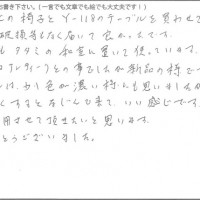 お書き下さい。(一言でも文章でも絵でも大丈夫です!)
の椅子とY-118のテーブルを買わせて
破損等もなく届いて良かったです。
も タタミの和室に置いて使っています。
との事でしたが新品の様で
は、少し色が濃い様にも思いますが
くするとなじんで来て、いい感じです。
用させて頂きたいと思います。
とうございました。